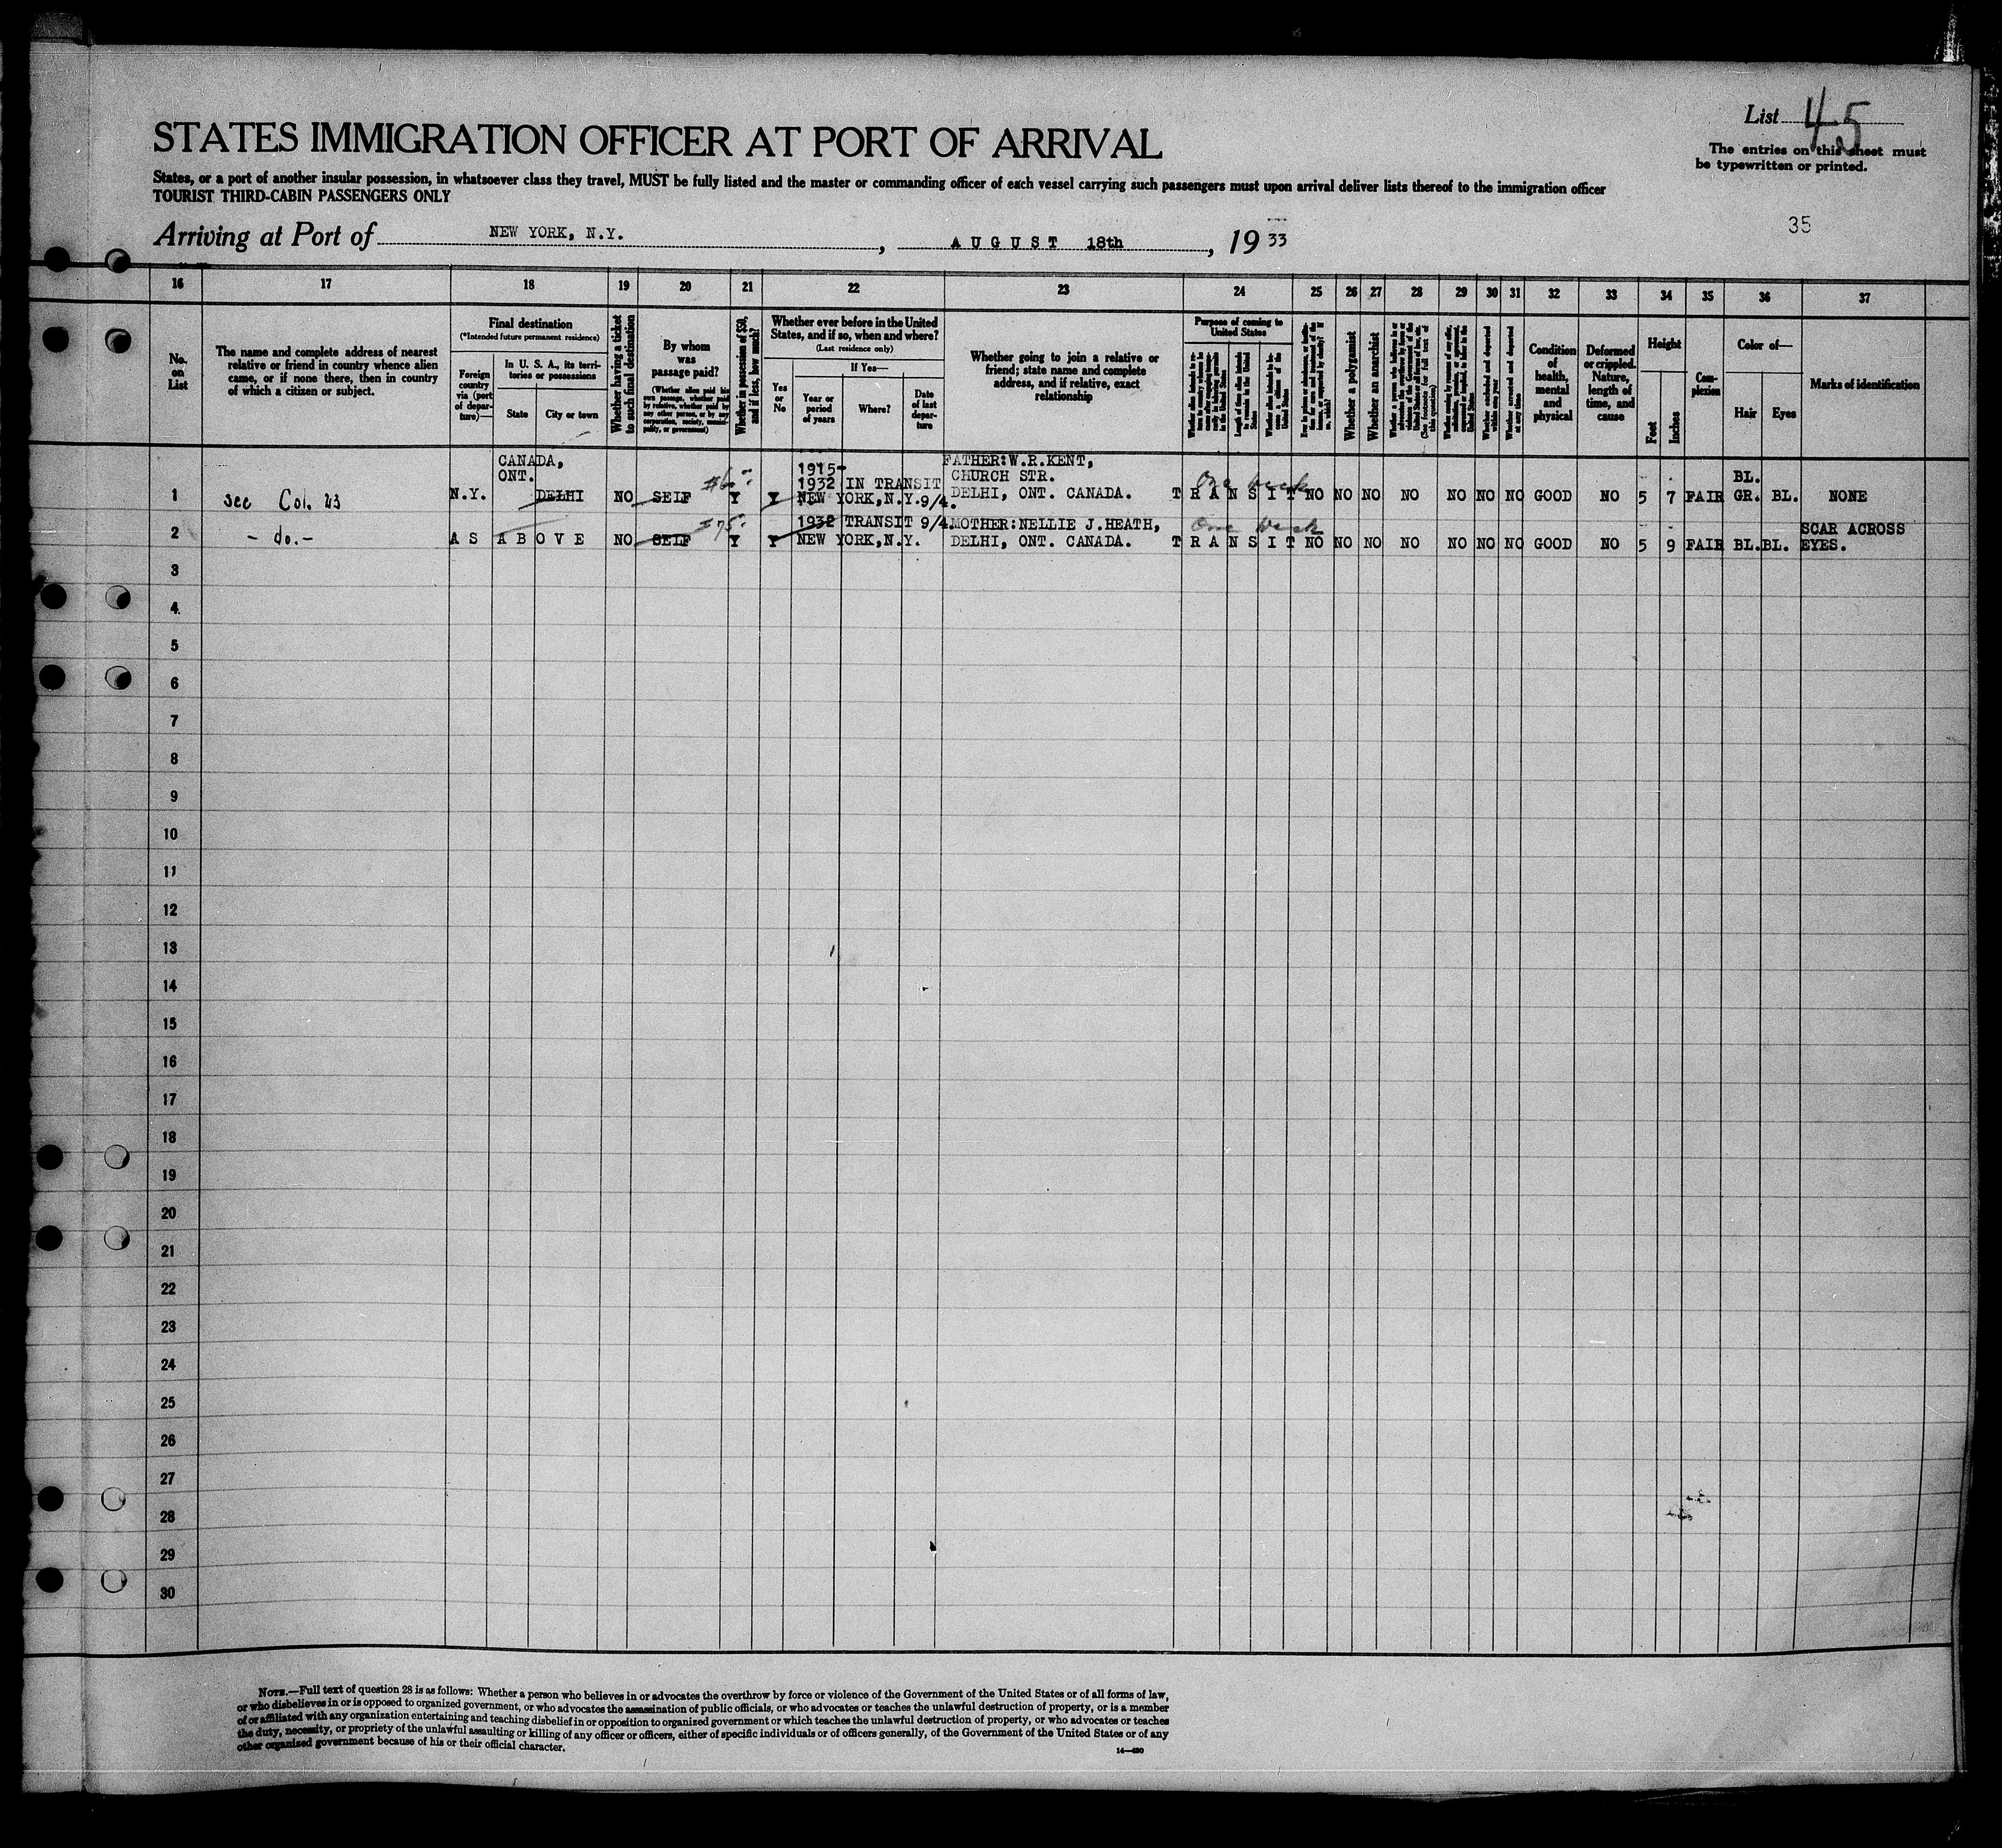 List 45
STATES IMMIGRATION OFFICER AT PORT OF ARRIVAL
The entries on this sheet must
be typewritten or printed.
States, or a port of another insular possession, in whatsoever class they travel, MUST be fully listed and the master or commanding officer of each vessel carrying such passengers must upon arrival deliver lists thereof to the immigration officer
TOURIST THIRD-CABIN PASSENGERS ONLY
35
Arriving at Port of NEW YORK, N.Y. , AUGUST 18th , 19 33
16 17 18 19 20 21 22 23 24 25 26 27 28 29 30 31 32 33 34 35 36 37
No.
on
List
The name and complete address of nearest
relative or friend in country whence alien
came, or if none there, then in country
of which a citizen or subject.
Final destination
(*Intended future permanent residence)
Foreign
country
via (port
of depar-
ture)—
In U. S. A., its terri-
tories or possessions
State
City or town
Whether having a ticket
to such final destination
By whom
was
passage paid?
(Whether alien paid his
own passage, whether paid
by relative, whether paid by
any other person, or by any
corporation, society, munici-
pality, or government)
Whether in possession of $50,
and if less, how much?
Whether ever before in the United
States, and if so, when and where?
(Last residence only)
Yes
or
No
If Yes—
Year or
period
of years
Where?
Date
of last
depar-
ture
Whether going to join a relative or
friend; state name and complete
address, and if relative, exact
relationship
Purpose of coming to
United States
Whether a polygamist
Whether an anarchist
Whether arrested and deported
at any time
Condition
of
health,
mental
and
physical
Deformed
or crippled.
Nature,
length of
time, and
cause
Height
Feet
Inches
Com-
plexion
Color of—
Hair
Eyes
Marks of identification
1
see Col. 23
N.Y.
CANADA,
ONT.
DELHI
NO
SELF
Y
Y
1915-
1932 IN TRANSIT
NEW YORK,N.Y.9/4.
FATHER:W.R.KENT,
CHURCH STR.
DELHI, ONT. CANADA.
One week
TRANSIT NO NO NO NO NO NO NO GOOD NO 5 7 FAIR
BL.
GR. BL. NONE
2
- do.-
AS ABOVE NO SELF
$75
Y
Y
1932 TRANSIT 9/4.
NEW YORK,N.Y.
MOTHER:NELLIE J.HEATH,
DELHI, ONT. CANADA.
One week
TRANSIT NO NO NO NO NO NO NO GOOD NO 5 9 FAIR BL. BL.
SCAR ACROSS
EYES.
3
4
5
6
7
8
9
10
11
12
13
14
15
16
17
18
19
20
21
22
23
24
25
26
27
28
29
30
NOTE.—Full text of question 28 is as follows: Whether a person who believes in or advocates the overthrow by force or violence of the Government of the United States or of all forms of law,
or who disbelieves in or is opposed to organized government, or who advocates the assassination of public officials, or who advocates or teaches the unlawful destruction of property, or is a member
of or affiliated with any organization entertaining and teaching disbelief in or opposition to organized government or which teaches the unlawful destruction of property, or who advocates or teaches
the duty, necessity, or propriety of the unlawful assaulting or killing of any officer or officers, either of specific individuals or of officers generally, of the Government of the United States or of any
other organized government because of his or their official character.
14—480